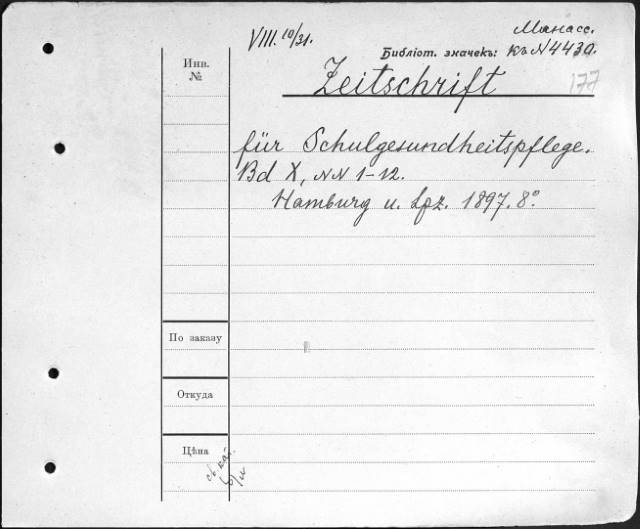 VIII. 10/31.
Манасс.
Библіот. значекъ: къ N 4430.
Инв.
№
Zeitschrift
177
für Schulgesundheitspflege.
Bd X, NN 1-12.
Hamburg u. Lpz. 1897. 8°.
По заказу
Откуда
Цѣна